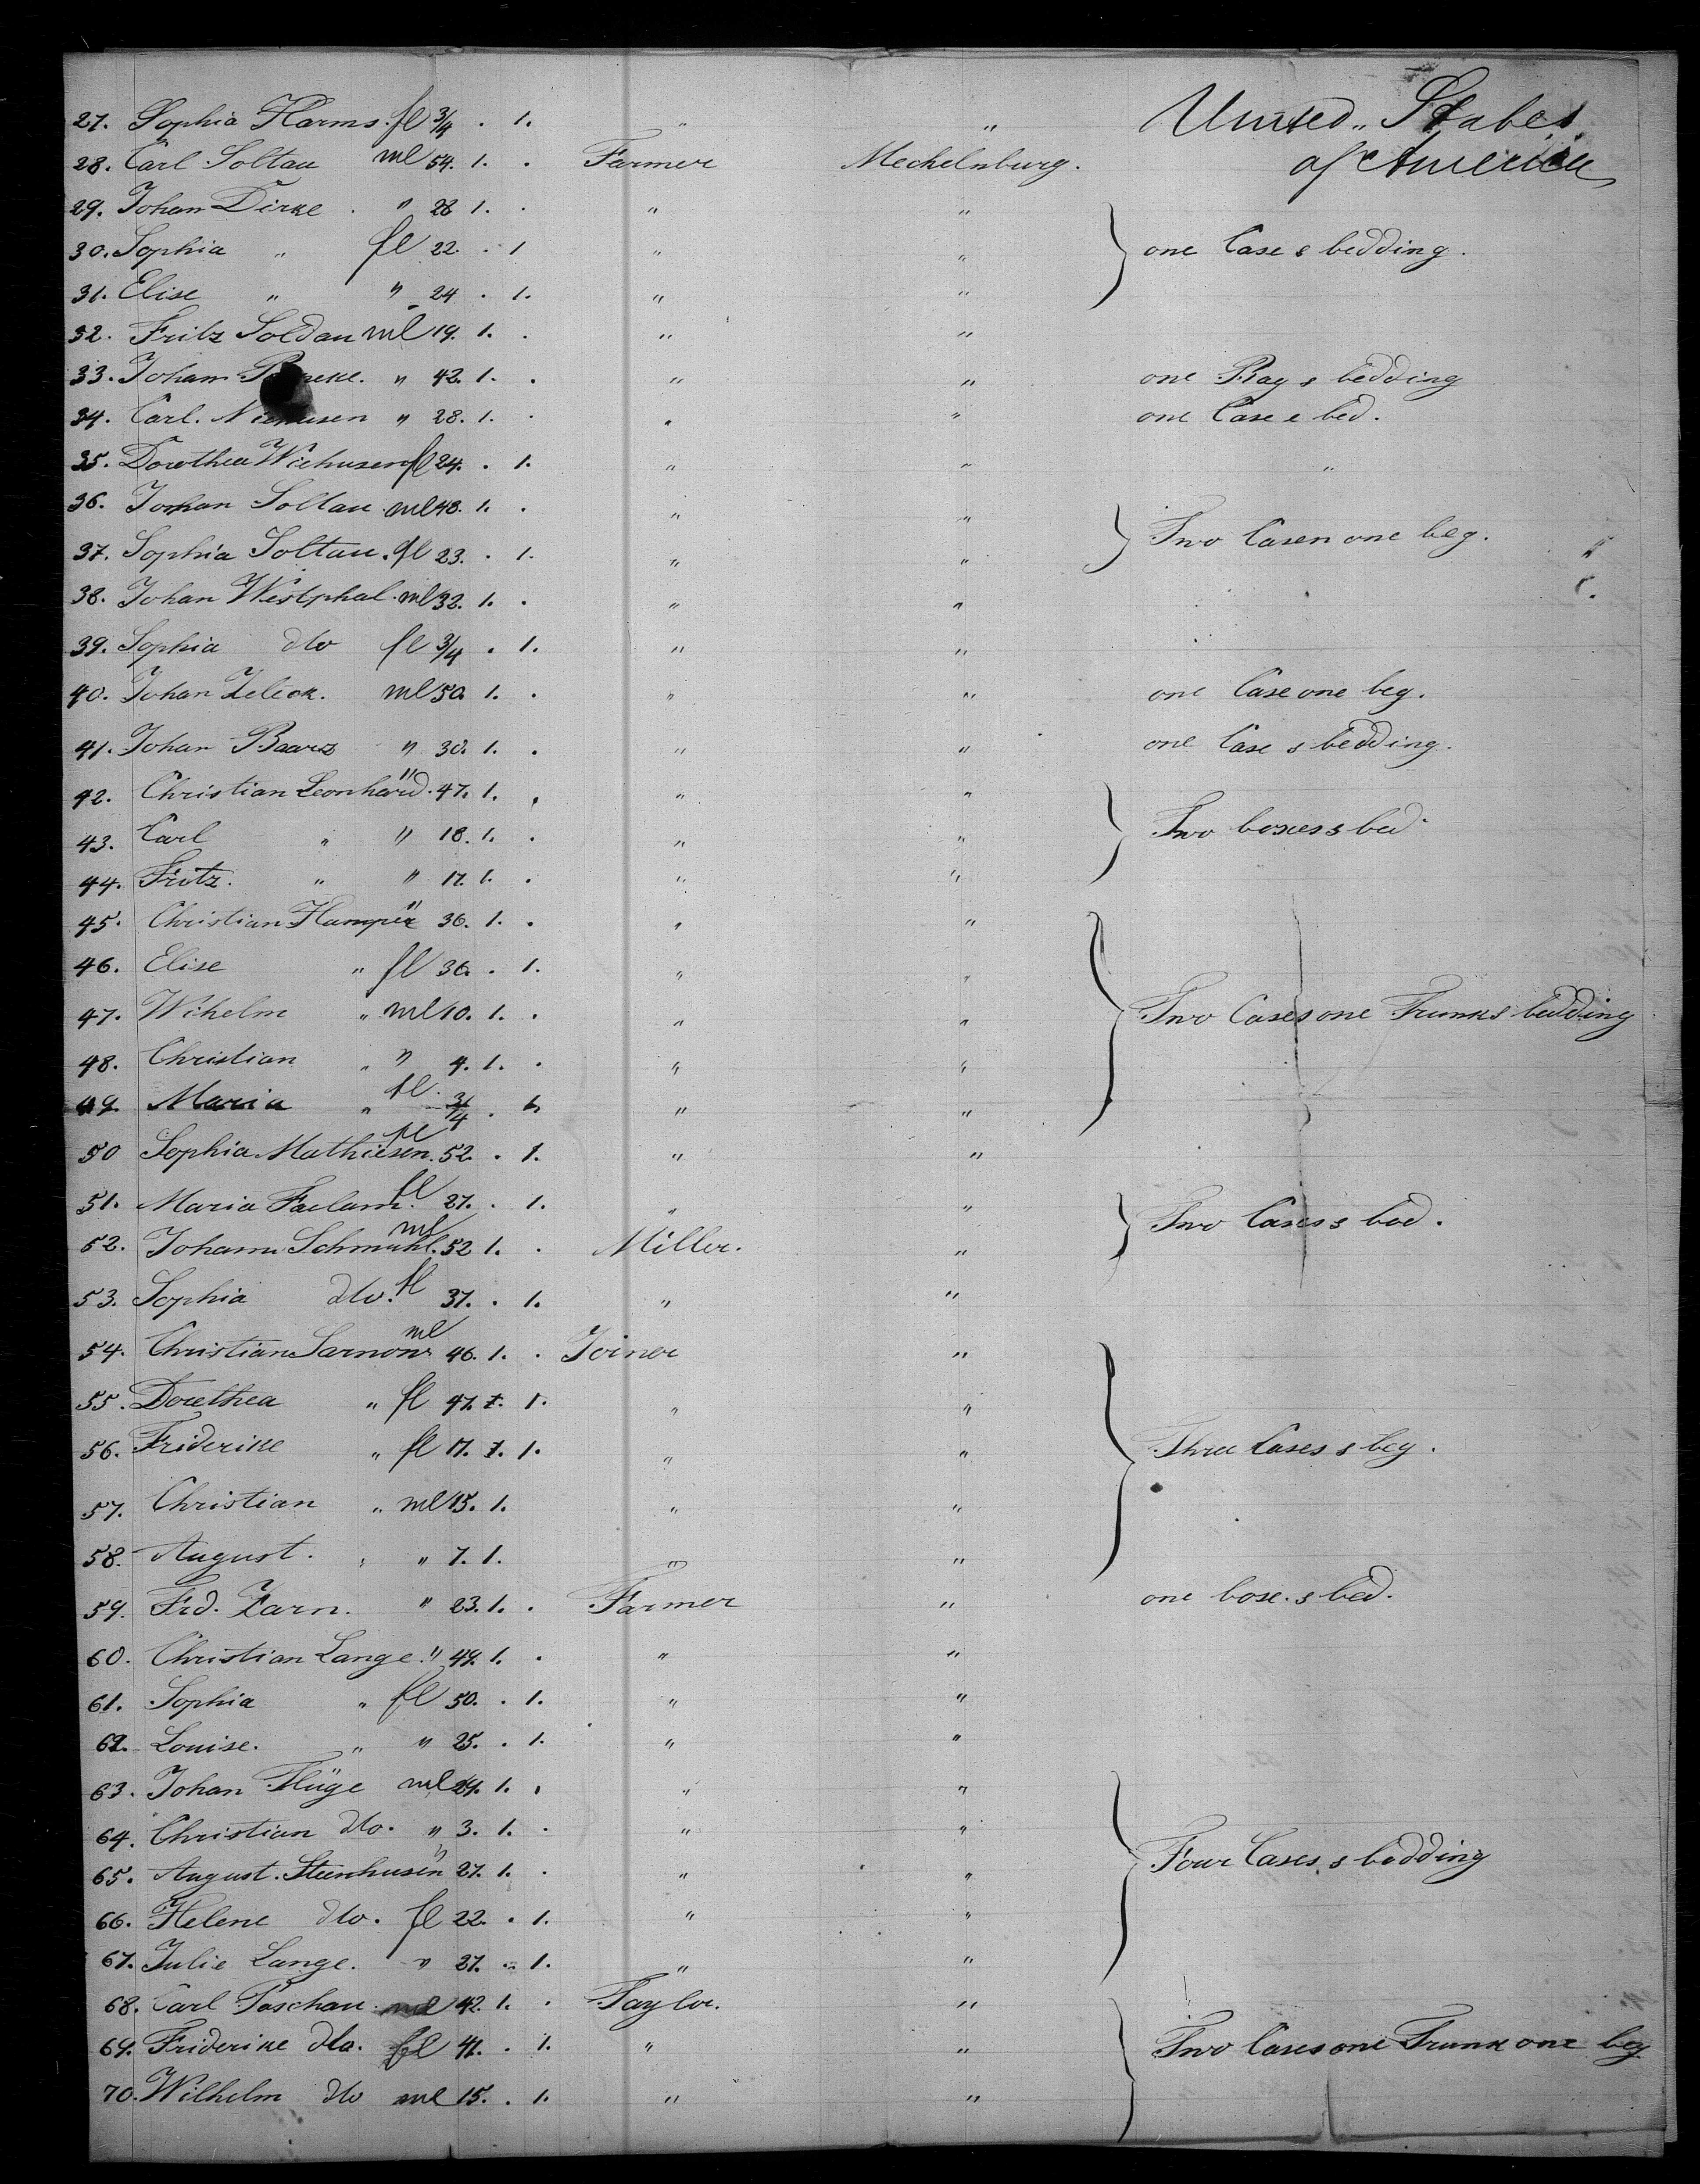 27. Sophia Harms. fl 3/4 . 1. " " United " States
28. Carl Soltau ml 54. 1. . Farmer Mechelnburg. of America
29. Johan Dirke . " 28 1. . " "
30. Sophia " fl 22. . 1 " " one Case s bedding.
31. Elise " " 24 . 1. " "
32. Fritz Soldau ml 19. 1. . " "
33. Joham " 42. 1. . " " one Bag s bedding
34. Carl. " 28. 1. . " " one Case e bed.
35. Dorothea Wiehusen fl 24. . 1. " " "
36. Johan Soltau. ml 48. 1. . " "
37. Sophia Soltau. fl 23. . 1. " " Two Casen one beg.
38. Johan Westphal. ml 32. 1. . " "
39. Sophia dto fl 3/4 . 1. " "
40. Johan Zeleck. ml 50. 1. . " " one Case one beg.
41. Johan Baarz " 30. 1. . " " one Case s bedding.
42. Christian Leonhard. " 47. 1. . " "
43. Carl " " 18. 1. . " " Two boxes s bed.
44. Fritz. " " 17. 1. . " "
45. Christian " 36. 1. . " "
46. Elise " fl 36. . 1. " "
47. Wihelm " ml 10. 1. . " " Two Cases one Trunk s bedding
48. Christian " " 4. 1. . " "
49. Maria " fl. 3/4 . 1. " "
50 Sophia Mathiesen. fl 52. . 1. " "
51. Maria fl 27. . 1. " " Two Cases s bed.
52. Johann Schmuhl. ml 52 1. . Miller. "
53. Sophia dto. fl 37. . 1. " "
54. Christian ml 46. 1. . Joiner "
55. Dorethea " fl 47. 1. 1. " "
56. Friderike " fl 17. 1. 1. " " Three Cases s beg.
57. Christian " ml 15. 1. " "
58. August. " " 7. 1. " "
59. Frd. Zarn. " 23. 1. . Farmer " one boxe. s bed.
60. Christian Lange. " 49. 1. . " "
61. Sophia " fl 50. . 1. " "
62. Louise. " " 25. . 1. " "
63. Johan Flüge ml 29. 1. . " "
64. Christian dto. " 3. 1. . " "
65. August. Steenhusen " 27. 1. . " " Four Cases s bedding
66. Helene dto. fl 22. . 1. " "
67. Julie Lange. " 27. . 1. " "
68. Carl Paschau ml 42. 1. . Taylor. "
69. Friderike dto. fl 41. . 1. " " Two Cases one Trunk one beg
70. Wilhelm dto ml 15. . 1. " "